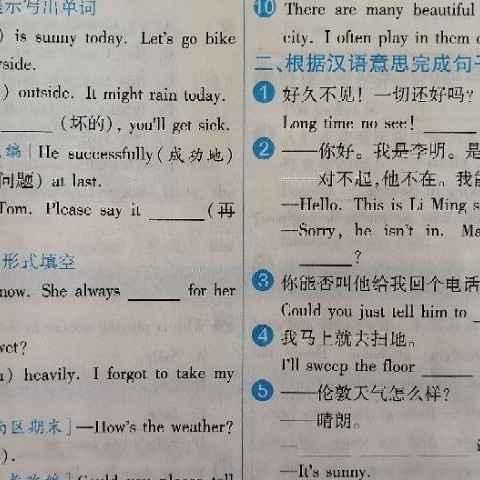 示写出单词
) is sunny today. Let's go bike
rside.
) outside. It might rain today.
______ (坏的), you'll get sick.
编] He successfully (成功地)
问题) at last.
Tom. Please say it ______ (再
形式填空
now. She always ______ for her
wet?
) heavily. I forgot to take my
区期末] —How's the weather?
).
⑩ There are many beautiful
city. I often play in them
二、根据汉语意思完成句子
❶ 好久不见! 一切还好吗?
Long time no see! ______
❷ ——你好。我是李明。是
——对不起,他不在。我能
—Hello. This is Li Ming s
—Sorry, he isn't in. Ma
______?
❸ 你能否叫他给我回个电话
Could you just tell him to
❹ 我马上就去扫地。
I'll sweep the floor ______
❺ ——伦敦天气怎么样?
——晴朗。
—It's sunny.